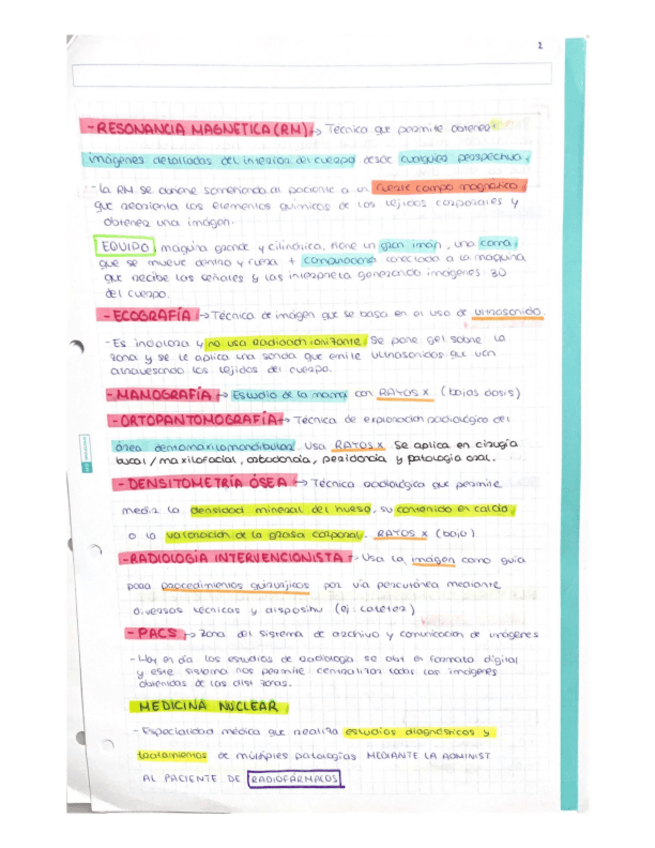 2
- RESONANCIA MAGNÉTICA (RM) → Técnica que permite obtener
imágenes detalladas del interior del cuerpo desde cualquier perspectiva.
- La RM se obtiene sometiendo al paciente a un fuerte campo magnético,
que reorienta los elementos químicos de los tejidos corporales y
obtener una imagen.
EQUIPO, máquina grande y cilíndrica, tiene un gran imán, una cama
que se mueve dentro y fuera + computadora conectada a la máquina
que recibe las señales y las interpreta generando imágenes 3D
del cuerpo.
- ECOGRAFÍA → Técnica de imagen que se basa en el uso de ultrasonido.
- Es indolora y no usa radiación ionizante. Se pone gel sobre la
zona y se le aplica una sonda que emite ultrasonidos que van
atravesando los tejidos del cuerpo.
- MAMOGRAFÍA → Estudio de la mama con RAYOS X (bajas dosis)
- ORTOPANTOMOGRAFÍA → Técnica de exploración radiológica del
área dentomaxilomandibular. Usa RAYOS X. Se aplica en cirugía
bucal / maxilofacial, ortodoncia, periodoncia y patología oral.
- DENSITOMETRÍA ÓSEA → Técnica radiológica que permite
medir la densidad mineral del hueso, su contenido en calcio
o la valoración de la grasa corporal. RAYOS X (bajo)
- RADIOLOGÍA INTERVENCIONISTA → Usa la imagen como guía
para procedimientos quirúrgicos por vía percutánea mediante
diversos técnicas y dispositiv (ej: catéter)
- PACS → Zona del sistema de archivo y comunicación de imágenes
- Hoy en día los estudios de radiología se obt en formato digital
y este sistema nos permite centralizar todas las imágenes
obtenidas de las dist zonas.
MEDICINA NUCLEAR
- Especialidad médica que realiza estudios diagnósticos y
tratamientos de múltiples patologías MEDIANTE LA ADMINIST
AL PACIENTE DE RADIOFÁRMACOS